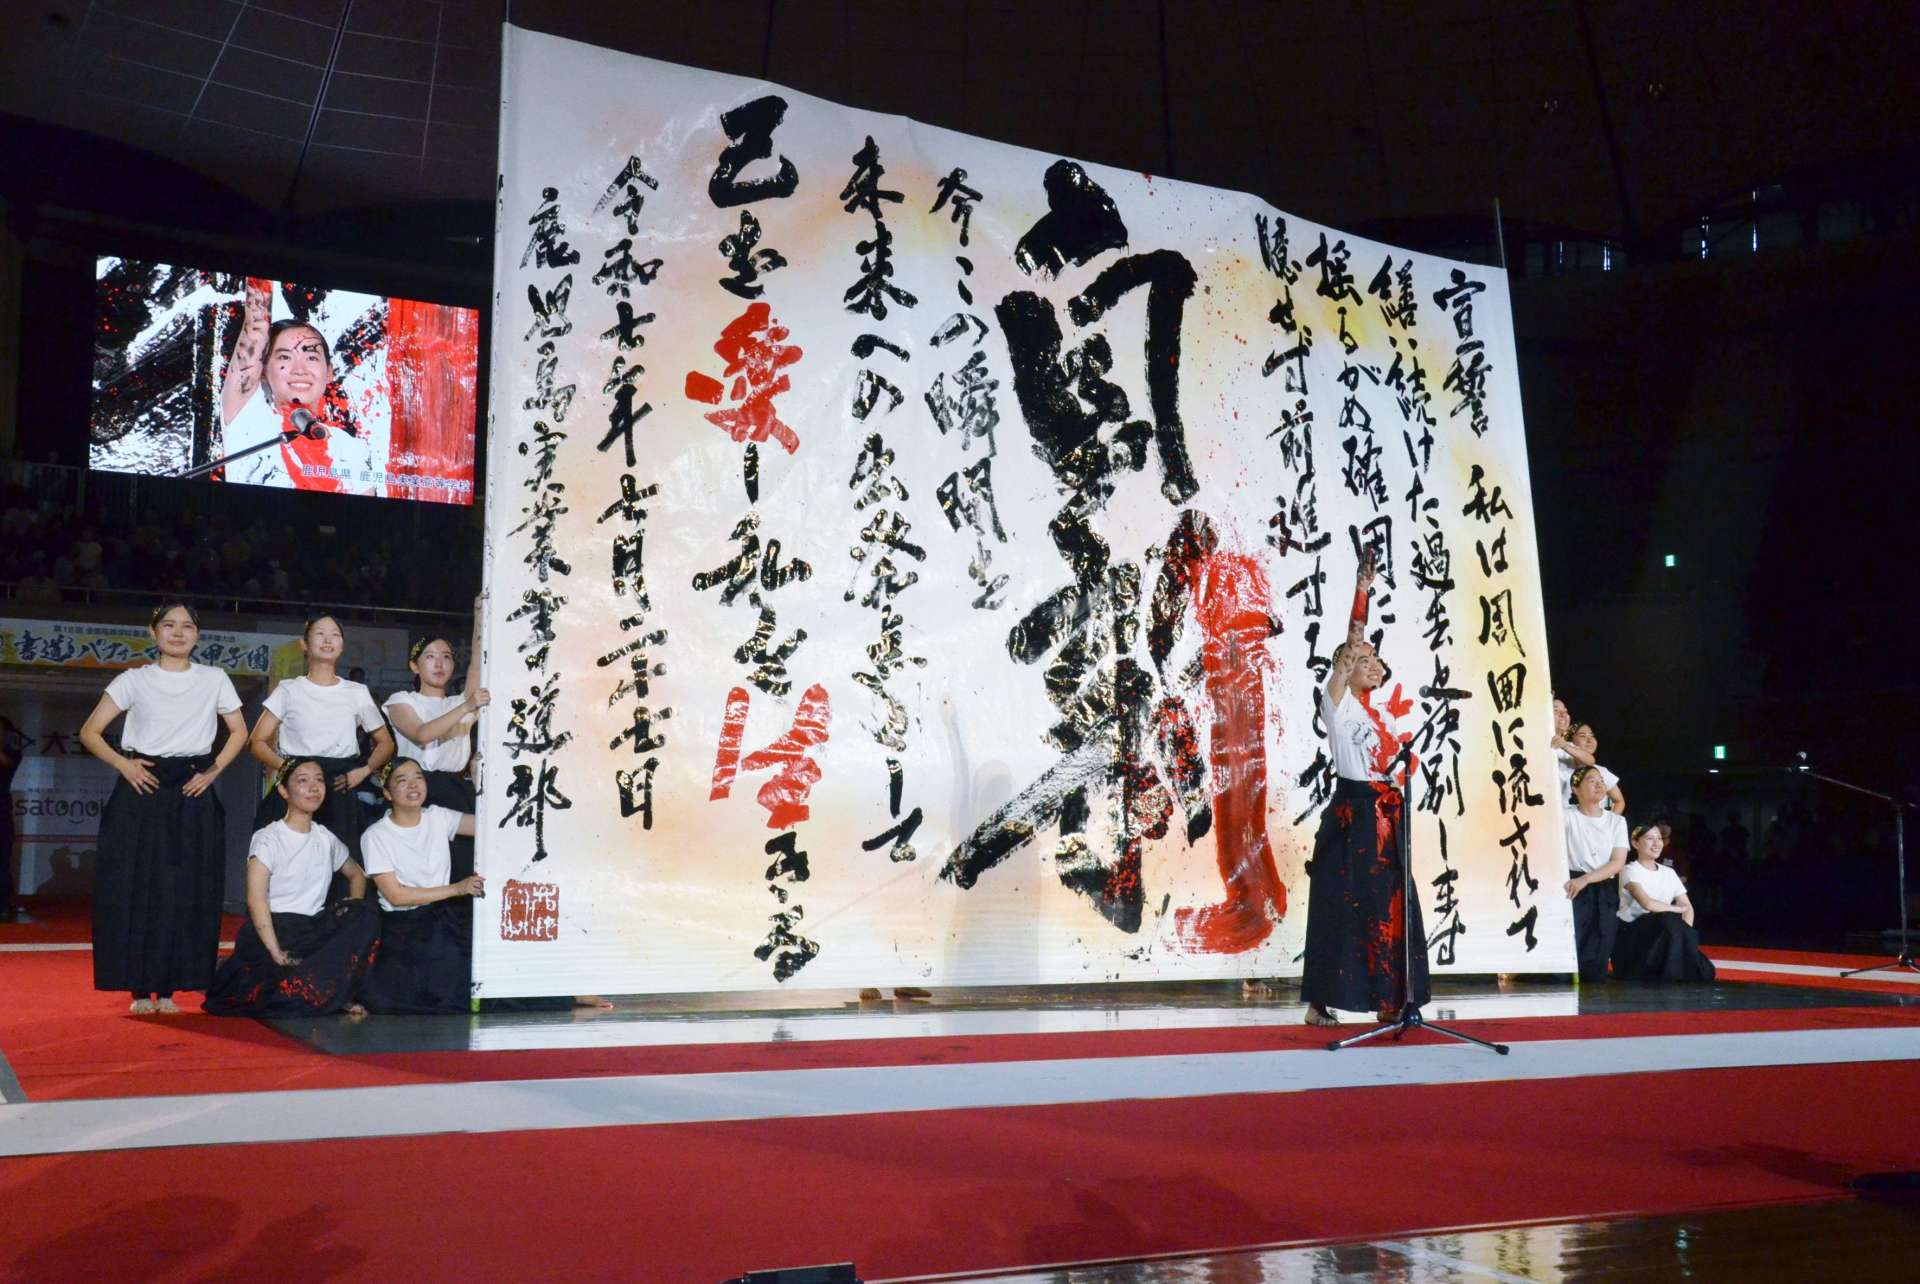 宣誓 私は周囲に流されて
繕い続けた過去と決別します
揺るがぬ確固た
臆せず前進すると
今この瞬間を
未来への出発点として
己を愛し私を生きる
令和七年七月二十七日
鹿児島実業書道部
鹿児島県 鹿児島実業高等学校
書道パフォーマンス甲子園